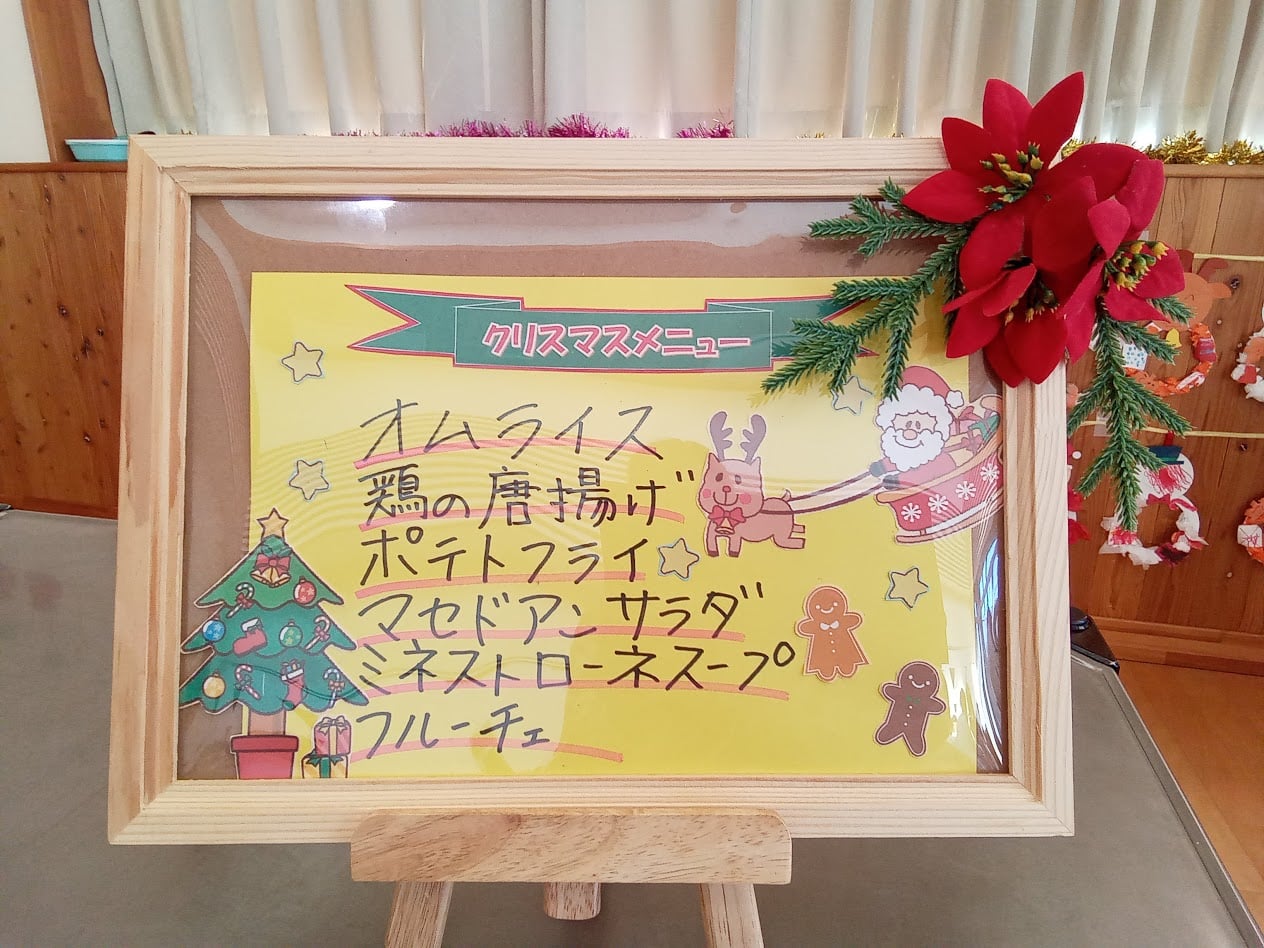 クリスマスメニュー
オムライス
鶏の唐揚げ
ポテトフライ
マセドアンサラダ
ミネストローネスープ
フルーチェ